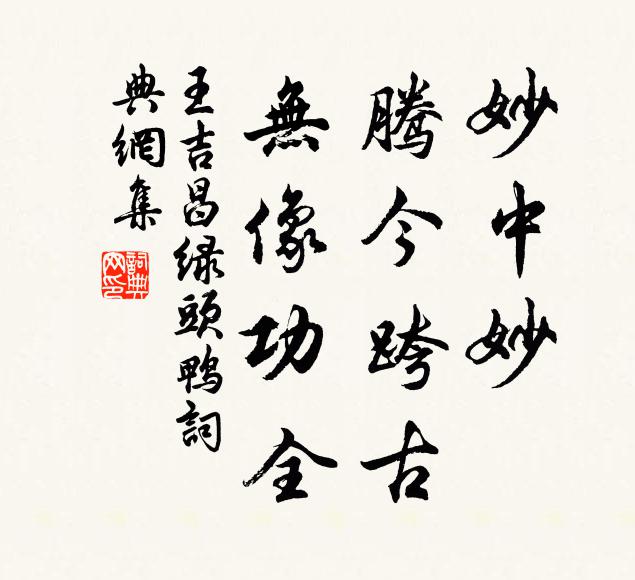 妙中妙
騰今跨古
無像功全
王吉昌緑頭鴨詞
典網集
詞典
网印